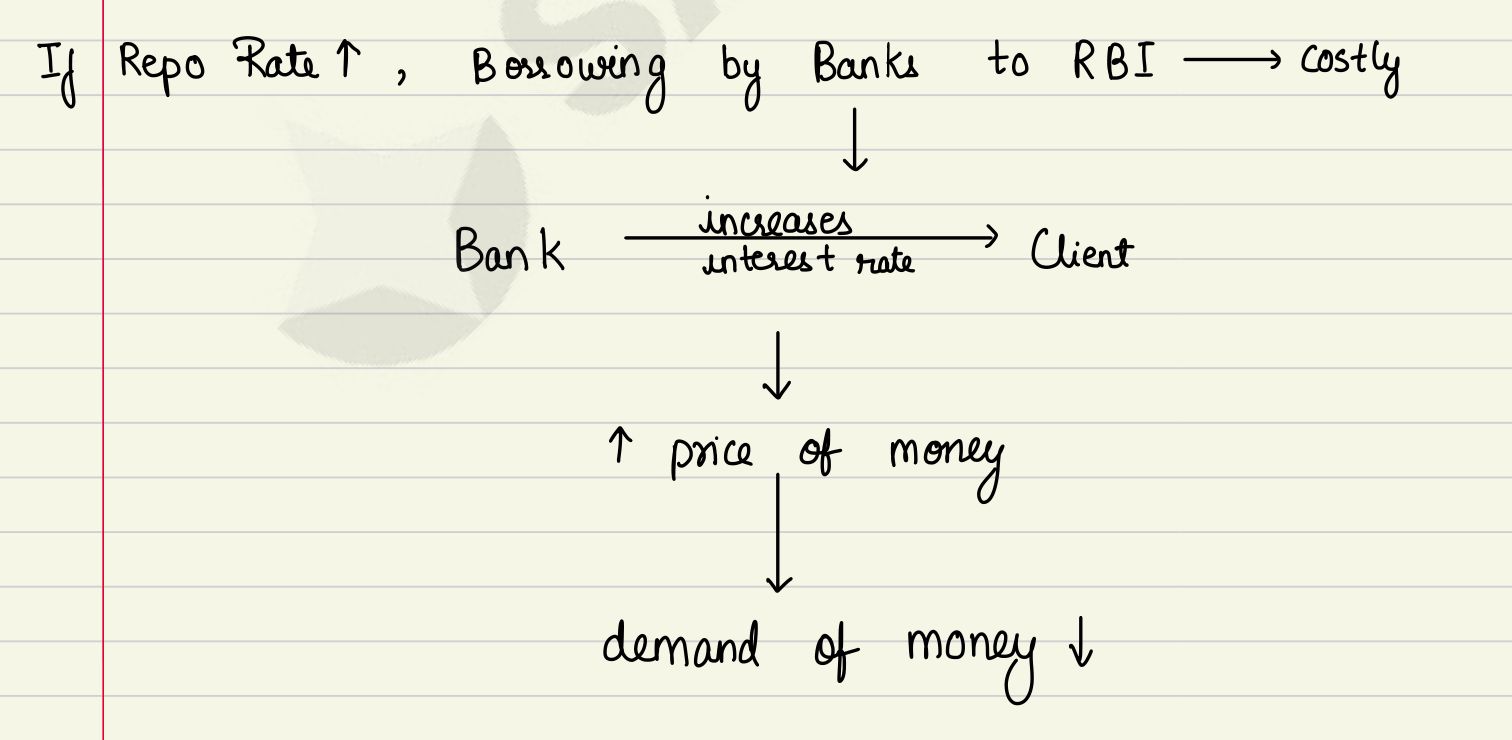 If Repo Rate ↑, Borrowing by Banks to RBI → costly
↓
Bank increases interest rate → Client
↓
↑ price of money
↓
demand of money ↓